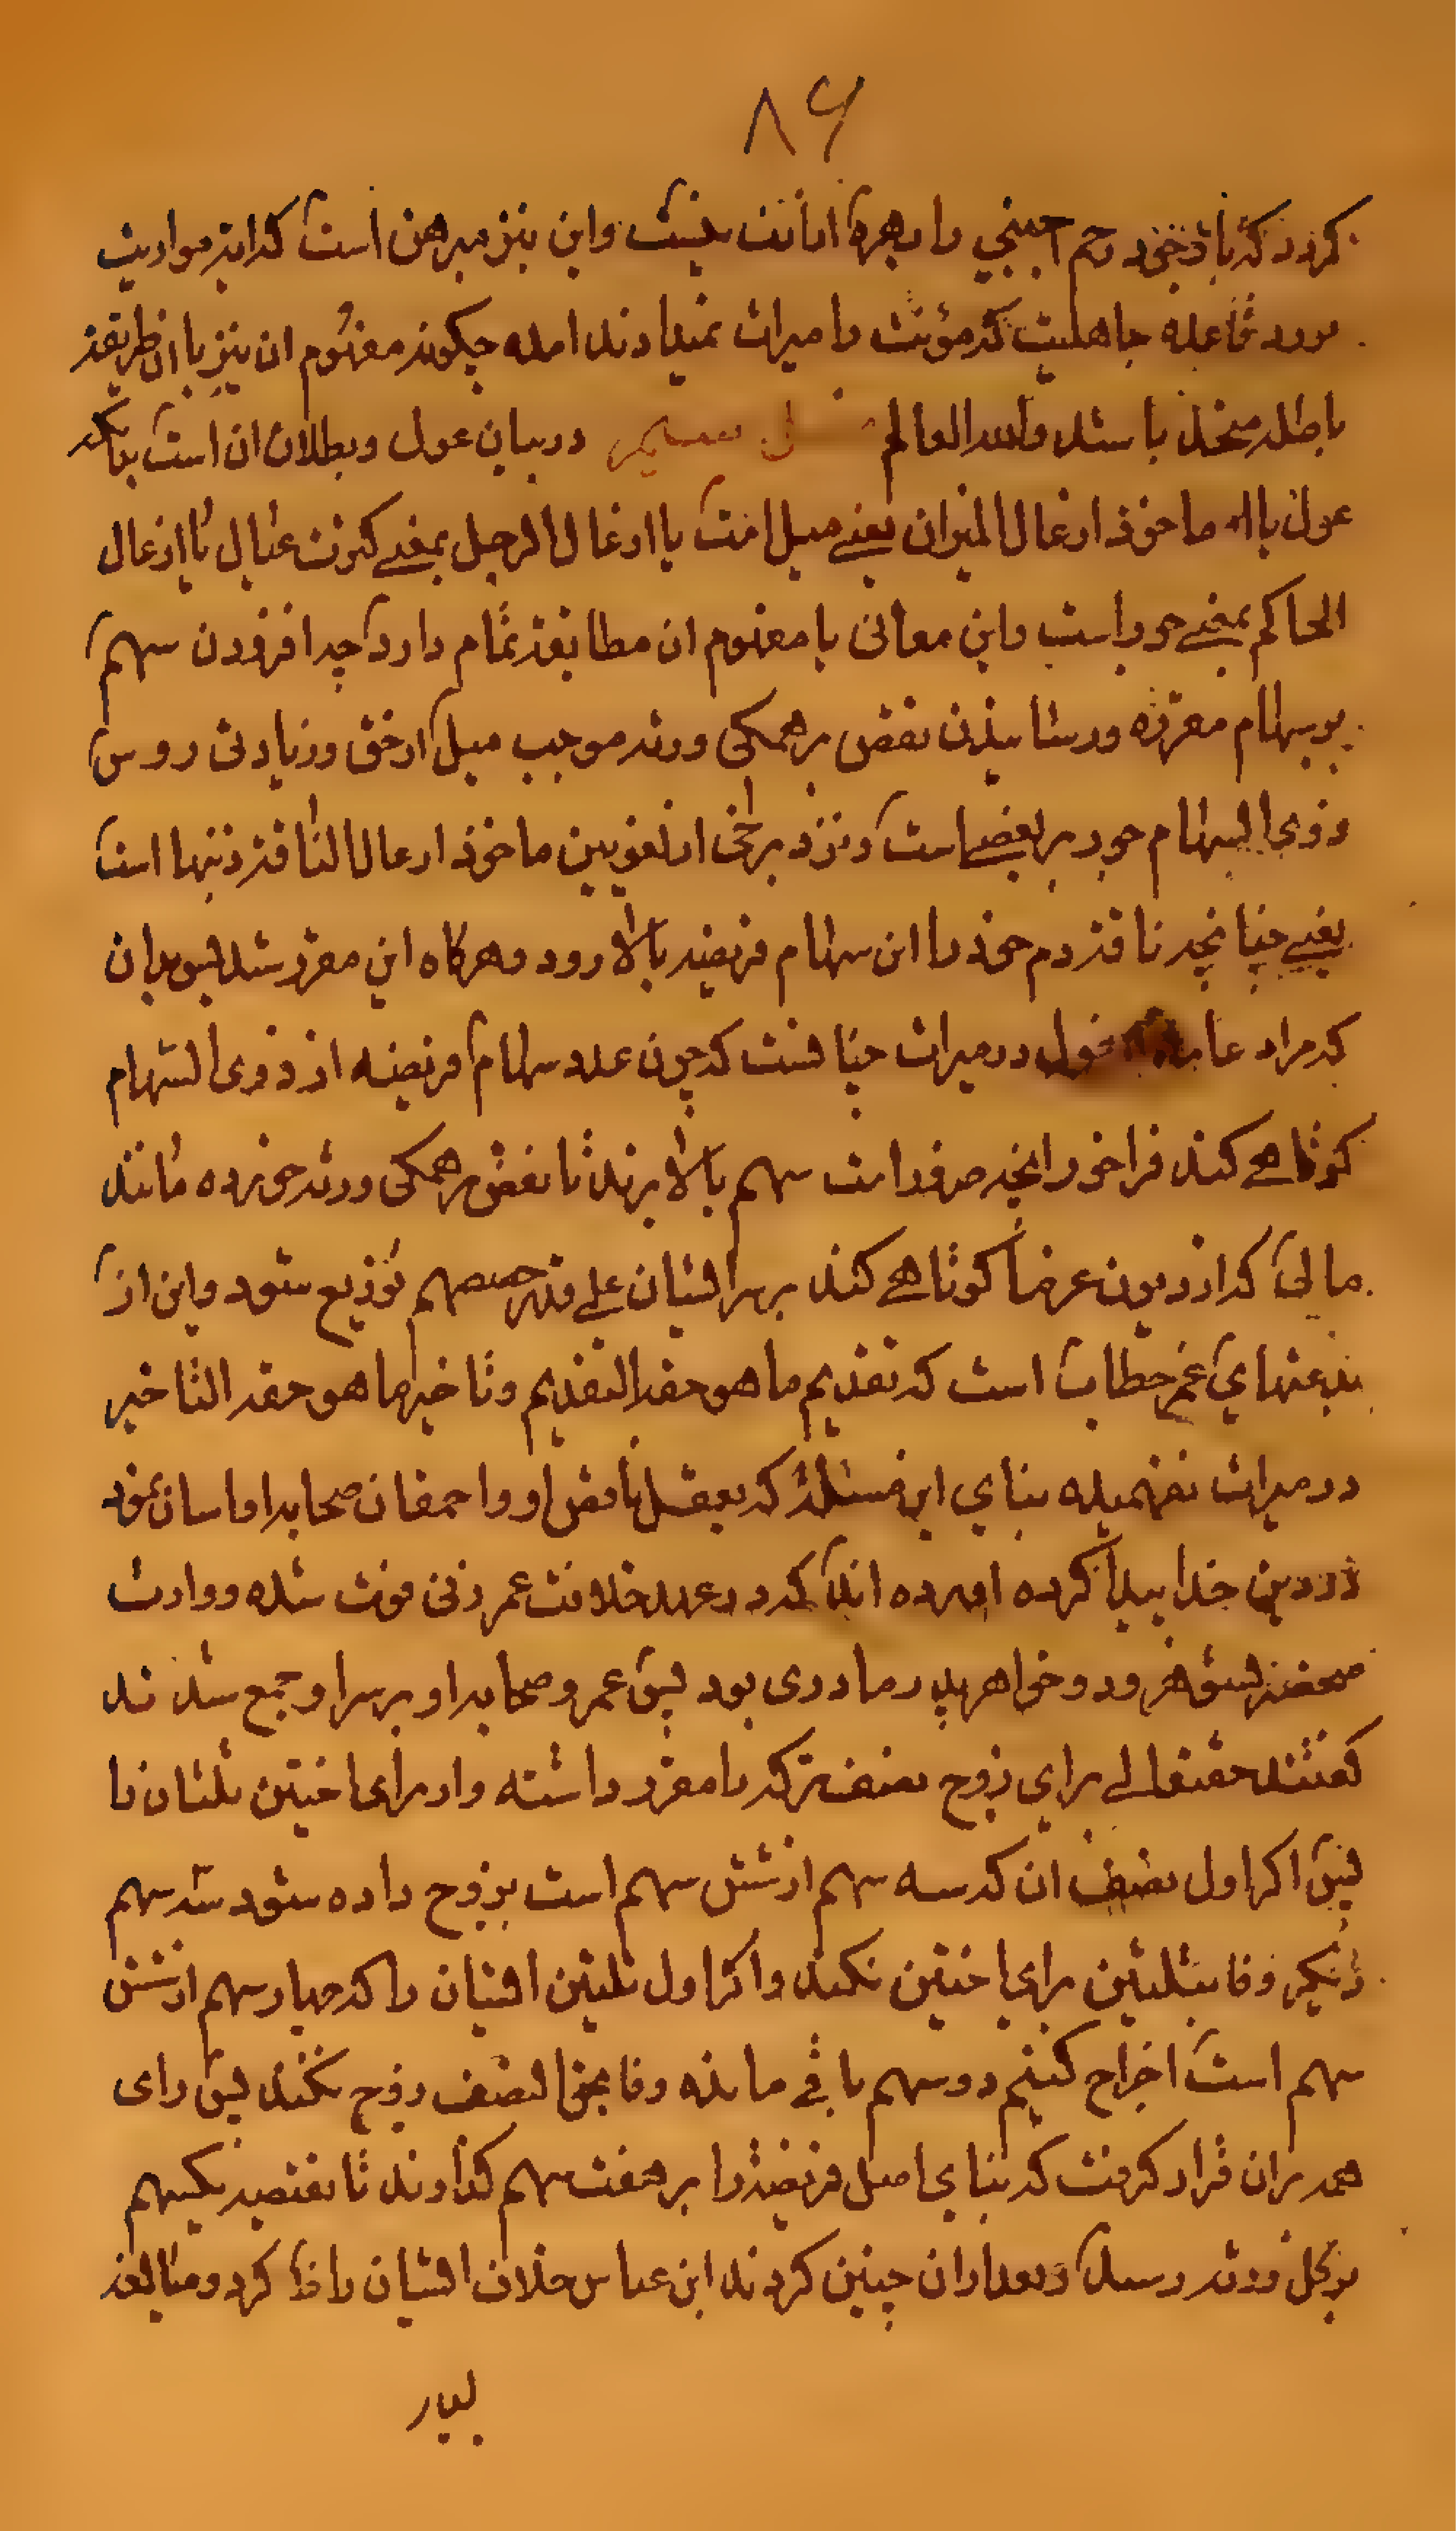 ۸۶
کردد که با وجود رحم اجنبی را بهره از آن نیست و این نیز مبرهن است که ایه مواریث
برد قاعده جاهلیت که مؤنث را میراث نمیدادند امده چکونه مفهوم ان نیز با ان طریقه
باطله متحد باشد والله العالم در بیان عول و بطلان ان است بدانکه
عول ماخوذ از عال المیزان یعنے میل است یا از عال الرجل بمعنے کثرت عیال یا از عال
الحاکم بمعنے جور است و این معانی با مفهوم ان مطابقه تمام دارد چه افزودن سهم
بر سهام مقرره و رسانیدن نقص بر همکی ورثه موجب میل از حق و زیادتی روس
ذوی السهام جور بر بعضے است و نزد برخی از لغویین ماخوذ از عال الناقة ذنبها است
یعنے چنانچه ناقه دم خود را این سهام فریضه بالا رود و هرکاه این مقرر شد پس بدان
که مراد عامه عول در میراث چنانست که چون عدد سهام فریضه از ذوی السهام
کوتاهے کند فراخور انچه صرفه است سهم بالا برند تا نقص بر همکی ورثه خورده مانند
مالی که از دیون غرما کوتاهے کند بر سر ایشان علے قدر حصصهم توزیع شود و این از
بدعتهای عمر خطاب است که تقدیم ما هو حقه التقدیم و تاخیر ما هو حقه التاخیر
در میراث نفهمیده بنای این مسئله که بعقل ناقص او و احمقان صحابه او اسان نمود
در دین خدا پیدا کرده اورده اند که در عهد خلافت عمر زنی فوت شده و وارث
منحصر بشوهر و دو خواهر پدر مادری بود پس عمر و صحابه او بر سر او جمع شدند
کفتند حقتعالے برای زوج نصف ترکه را مقرر داشته و از برای اختین ثلثان را
پس اکر اول نصف ان که سه سهم از شش سهم است بزوج داده شود سه سهم
دیکر وفا بثلثین برای اختین نکند و اکر اول ثلثین ایشان را که چهار سهم از شش
سهم است اخراج کنیم دو سهم باقے مانده وفا بحق النصف زوج نکند پس رای
همه بران قرار کرفت که بنای اصل فریضه را بر هفت سهم کذارند تا نقصیه یکسهم
بر کل ورثه رسد و بعد از ان چنین کردند ابن عباس خلاف ایشان را ظ کرد و مبالغه
بسیار